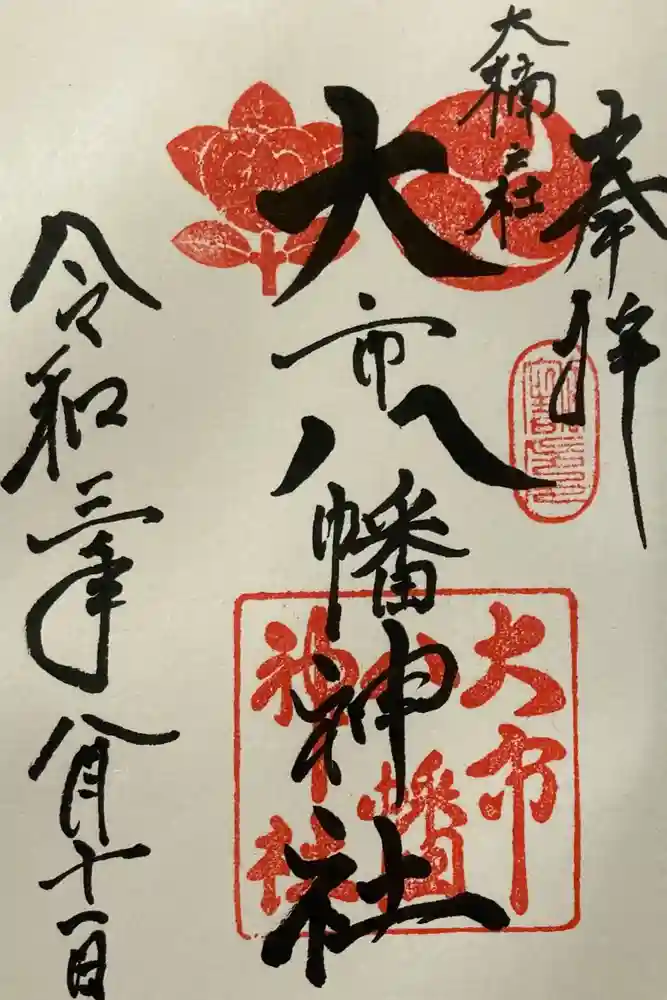 奉拝
大楠社
大市八幡神社
令和三年八月十一日
大市
八幡
神社